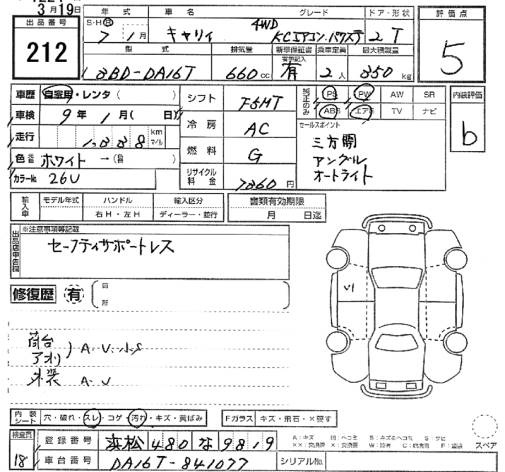 3月19日
出品番号
212
年 車名 グレード ドア・形状 評価点
S・H・R 7 / 1月 キャリイ 4WD KCエアコン パワステ 2 T
5
型式 排気量 新車保証書 乗車定員 最大積載量
3BD-DA16T 660cc 有 2人 350kg
車歴 自家用・レンタ( )
車検 9年 1月( 日)
走行 1,338 km マイル
色番 ホワイト →( )
カラーNo. 26U
シフト F5MT
冷房 AC
燃料 G
リサイクル料金 7860円
純正のみ PS PW AW SR
ABS エアB TV ナビ
内装評価
b
セールスポイント
三方開
アングル
オートライト
輸入車 モデル年式 ハンドル 輸入区分 書類有効期限
右H・左H ディーラー・並行 月 日迄
出品店申告欄
※注意事項等記載
セーフティサポートレス
修復歴 有 箇所
荷台
アオリ )A・U・小S
外装 A・U
V1
内装シート 穴・破れ・スレ・コゲ・汚れ・キズ・黄ばみ
Fガラス キズ・飛石・X要す
スペア
検査員
18
登録番号 浜松 480 な 9819
車台番号 DA16T-841077
シリアルNo.